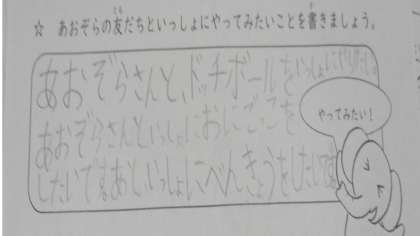 ☆ あおぞらの友だちといっしょにやってみたいことを書きましょう。
あおぞらさんと、ドッチボールをいっしょにやりたい。
あおぞらさんといっしょにおにごこを
したいです。あといっしょにべんきょうをしたいです
やってみたい!